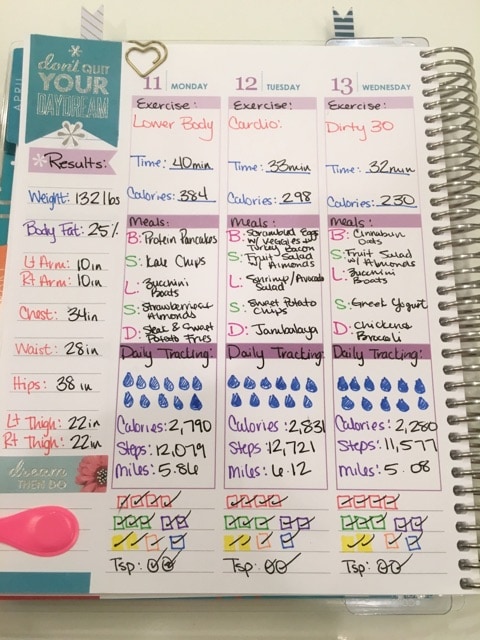 APRIL
don't QUIT
YOUR
DAYDREAM
Results:
Weight: 132 lbs
Body Fat: 25%
Lt Arm: 10in
Rt Arm: 10in
Chest: 34in
Waist: 28in
Hips: 38 in
Lt Thigh: 22in
Rt Thigh: 22in
dream
THEN DO
11 MONDAY
Exercise:
Lower Body
Time: 40min
Calories: 384
Meals:
B: Protein Pancakes
S: Kale Chips
L: Zucchini
Boats
S: Strawberries &
Almonds
D: Steak & Sweet
Potato Fries
Daily Tracking:
Calories: 2,790
Steps: 12,079
Miles: 5.86
Tsp:
12 TUESDAY
Exercise:
Cardio:
Time: 33min
Calories: 298
Meals:
B: Scrambled Eggs
w/ Veggies &
Turkey Bacon
S: Fruit Salad
w/ Almonds
L: Shrimp/Avocado
Salad
S: Sweet Potato
Chips
D: Jambalaya
Daily Tracking:
Calories: 2,831
Steps: 12,721
Miles: 6.12
Tsp:
13 WEDNESDAY
Exercise:
Dirty 30
Time: 32min
Calories: 230
Meals:
B: Cinnabun
Oats
S: Fruit Salad
w/ Almonds
L: Zucchini
Boats
S: Greek Yogurt
D: Chicken &
Broccoli
Daily Tracking:
Calories: 2,280
Steps: 11,577
Miles: 5.08
Tsp: